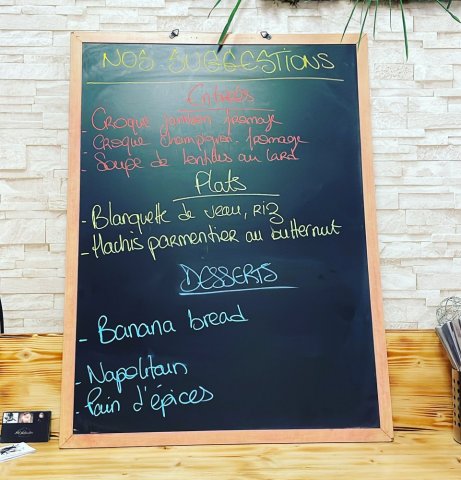 NOS SUGGESTIONS
Entrées
- CROQUE jambon fromage
- CROQUE champignon. fromage
- Soupe de lentilles au lard
Plats
- Blanquette de veau, RIZ
- Hachis parmentier au butternut
DESSERTS
- Banana bread
- Napolitain
- Pain d'épices